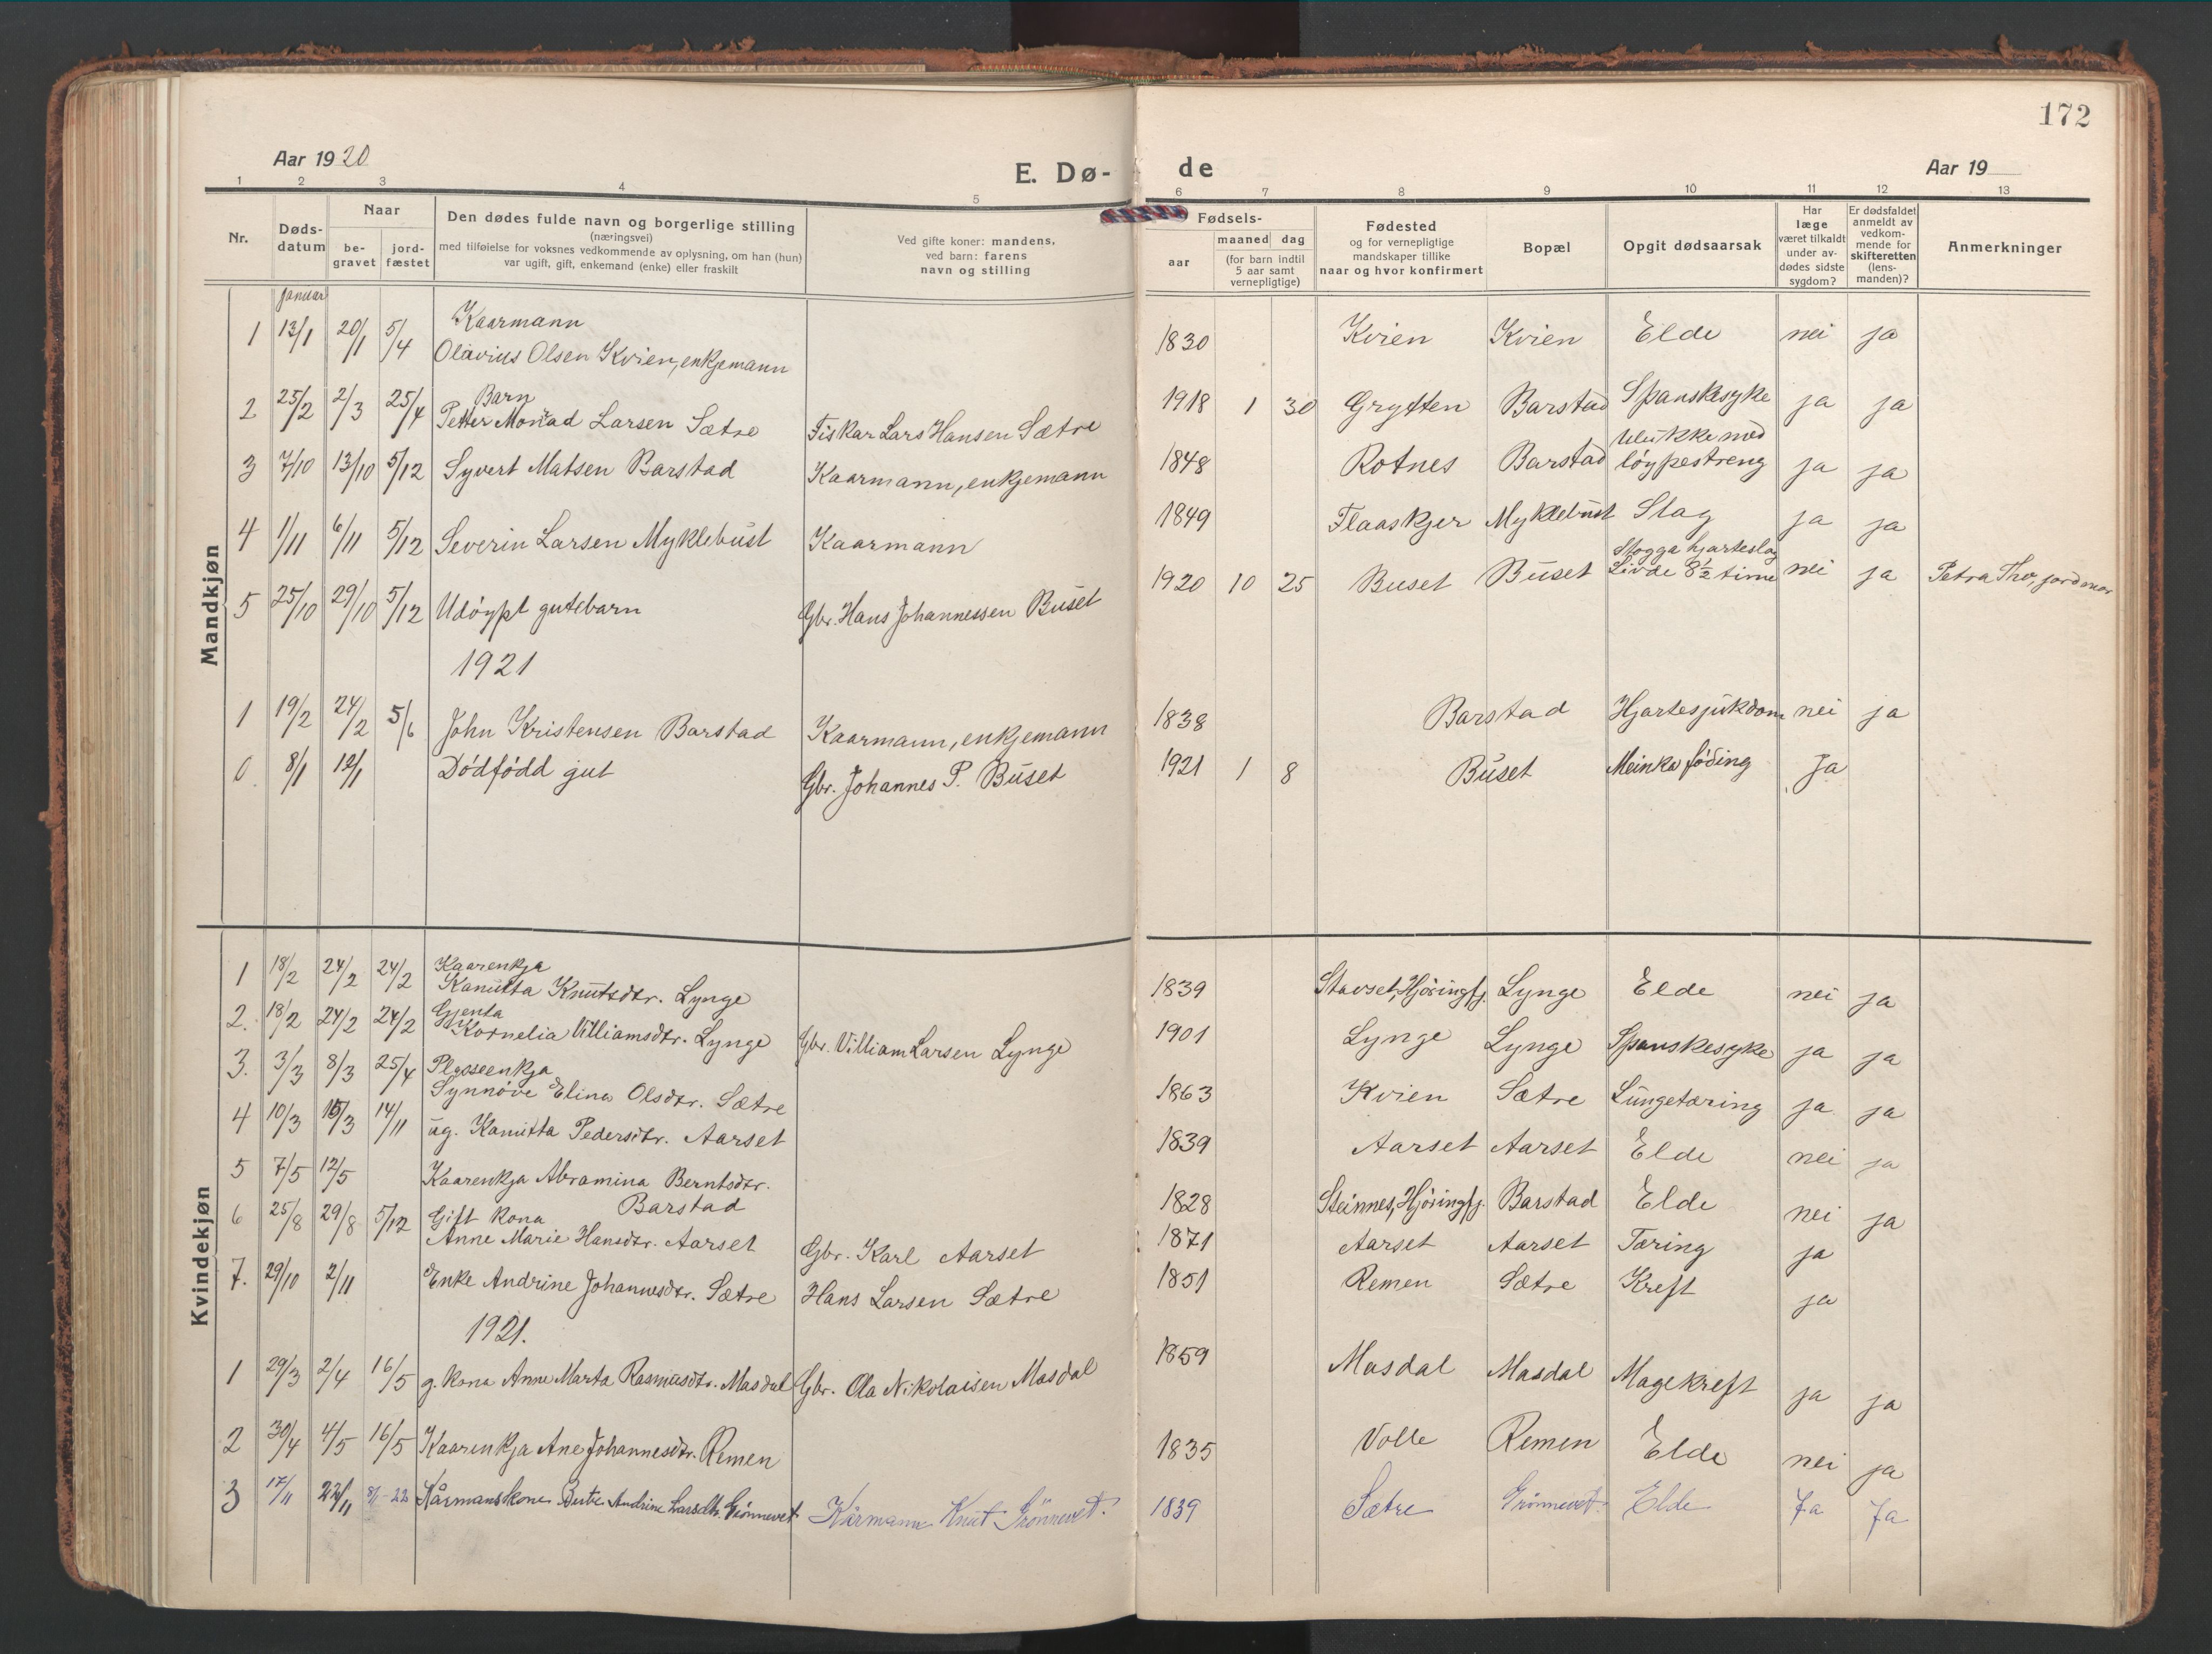 172
Aar 1920
E. Dø-
de
Aar 19
1 2 3 4 5 6 7 8 9 10 11 12 13
Nr.
Døds-
datum
Naar
be-
gravet
jord-
fæstet
Den dødes fulde navn og borgerlige stilling
(næringsvei)
med tilføielse for voksnes vedkommende av oplysning, om han (hun)
var ugift, gift, enkemand (enke) eller fraskilt
Ved gifte koner: mandens,
ved barn: farens
navn og stilling
Fødsels-
aar
maaned dag
(for barn indtil
5 aar samt
vernepligtige)
Fødested
og for vernepligtige
mandskaper tillike
naar og hvor konfirmert
Bopæl
Opgit dødsaarsak
Har
læge
været tilkaldt
under av-
dødes sidste
sygdom?
Er dødsfaldet
anmeldt av
vedkom-
mende for
skifteretten
(lens-
manden)?
Anmerkninger
Mandkjøn
januar
Kaarmann
1 13/1 20/1 5/4 Olavius Olsen Kvien, enkjemann 1830 Kvien Kvien Elde nei ja
Barn
2 25/2 2/3 25/4 Petter Monrad Larsen Sætre Fiskar Lars Hansen Sætre 1918 1 30 Grytten Barstad Spanskesyke ja ja
Ulukke med
3 7/10 13/10 5/12 Syvert Matsen Barstad Kaarmann, enkjemann 1848 Rotnes Barstad løypestreng ja ja
4 1/11 6/11 5/12 Severin Larsen Myklebust Kaarmann 1849 Flaaskjer Myklebust Slag ja ja
Stogga hjarteslag
5 25/10 29/10 5/12 Udøypt gutebarn Gbr. Hans Johannessen Buset 1920 10 25 Buset Buset Livde 8½ time nei ja Petra Tho, jordmor
1921
1 19/2 24/2 5/6 John Kristensen Barstad Kaarmann, enkjemann 1838 Barstad Hjartesjukdom nei ja
0. 8/1 12/1 Dødfødd gut Gbr. Johannes P. Buset 1921 1 8 Buset Meinka føding Ja
Kvindekjøn
Kaarenkja
1 18/2 24/2 24/2 Kanutta Knutsdtr. Lynge 1839 Stavset, Hjøringfj. Lynge Elde nei ja
Gjenta
2. 18/2 24/2 24/2 Kornelia Villiamsdtr. Lynge Gbr. Villiam Larsen Lynge 1901 Lynge Lynge Spanskesyke ja ja
Plasseenkja
3. 3/3 8/3 25/4 Synnøve Elina Olsdtr. Sætre 1863 Kvien Sætre Lungetæring ja ja
4 10/3 15/3 14/11 ug. Kanutta Pedersdtr. Aarset 1839 Aarset Aarset Elde nei ja
5 7/5 12/5 Kaarenkja Abramina Berntsdtr.
Barstad 1828 Steinnes, Hjøringfj. Barstad Elde nei ja
Gift kona
6 25/8 29/8 5/12 Anne Marie Hansdtr. Aarset Gbr. Karl Aarset 1871 Aarset Aarset Tæring ja
7. 29/10 2/11 Enke Andrine Johannesdtr. Sætre Hans Larsen Sætre 1851 Remen Sætre Kreft ja
1921.
1 29/3 2/4 16/5 g. kona Anne Marta Rasmusdtr. Masdal Gbr. Ola Nikolaisen Masdal 1859 Masdal Masdal Magekreft ja ja
2 30/4 4/5 16/5 Kaarenkja Ane Johannesdtr. Remen 1835 Volle Remen Elde nei ja
3 17/11 22/11 8/1-22 Kårmannskone Berte Andrine Larsdtr. Grönnevet Kårmann Knut Grönnevet. 1839 Sætre Grönnevet. Elde Ja Ja